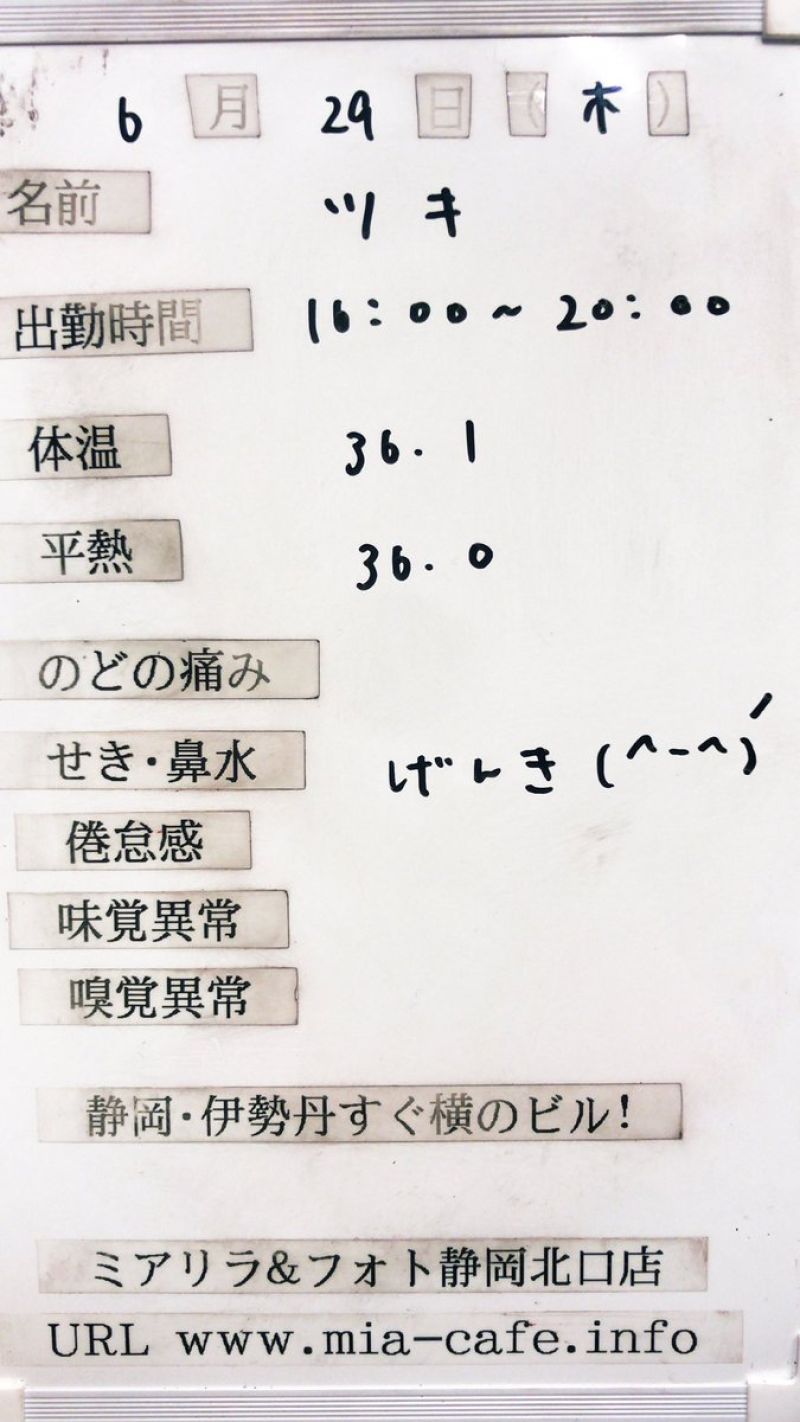 6月29日(木)
名前 ツキ
出勤時間 16:00~20:00
体温 36.1
平熱 36.0
のどの痛み
せき・鼻水 げんき(^-^)ノ
倦怠感
味覚異常
嗅覚異常
静岡・伊勢丹すぐ横のビル!
ミアリラ&フォト静岡北口店
URL www.mia-cafe.info